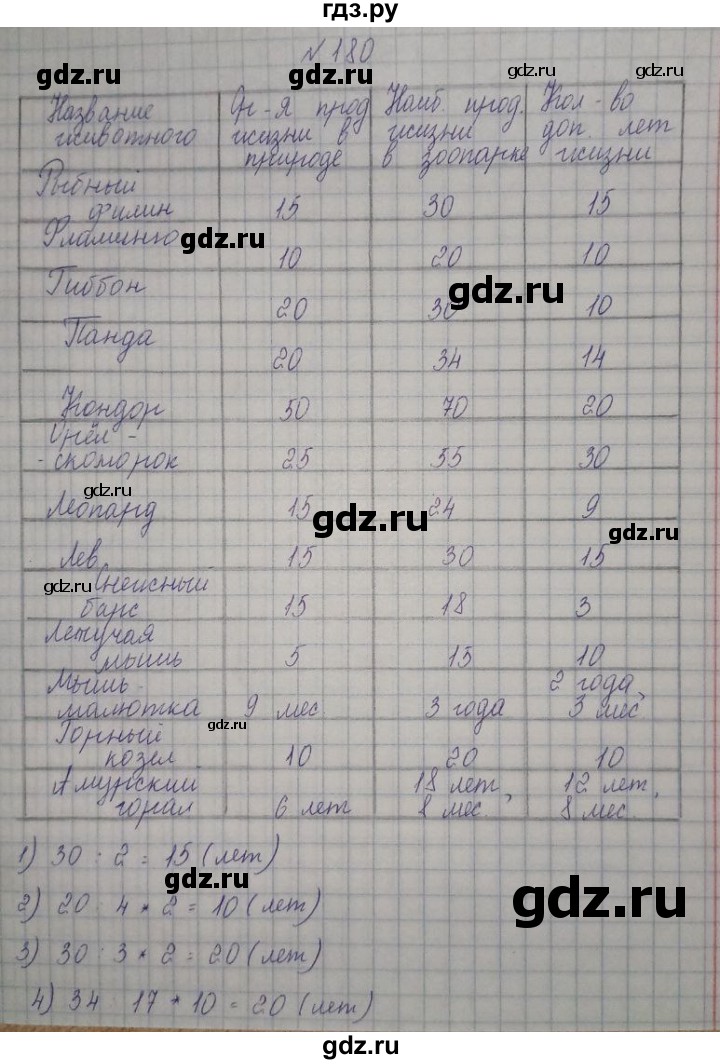 гдз.ру
№ 180
Название животного | Ср-я прод жизни в природе | Наиб. прод. жизни в зоопарке | Кол-во доп. лет жизни
Рыбный филин | 15 | 30 | 15
Фламинго | 10 | 20 | 10
Гиббон | 20 | 30 | 10
Панда | 20 | 34 | 14
Кондор | 50 | 70 | 20
Орёл-скоморох | 25 | 55 | 30
Леопард | 15 | 24 | 9
Лев | 15 | 30 | 15
Снежный барс | 15 | 18 | 3
Летучая мышь | 5 | 15 | 10
Мышь-малютка | 9 мес | 3 года | 2 года, 3 мес
Горный козел | 10 | 20 | 10
Амурский горал | 6 лет | 18 лет, 8 мес. | 12 лет, 8 мес.
1) 30 : 2 = 15 (лет)
2) 20 : 4 * 2 = 10 (лет)
3) 30 : 3 * 2 = 20 (лет)
4) 34 : 17 * 10 = 20 (лет)
gdz.ru
gdz.ru
gdz.ru
gdz.ru
gdz.ru
gdz.ru
gdz.ru
gdz.ru
gdz.ru
gdz.ru
gdz.ru
gdz.ru
gdz.ru